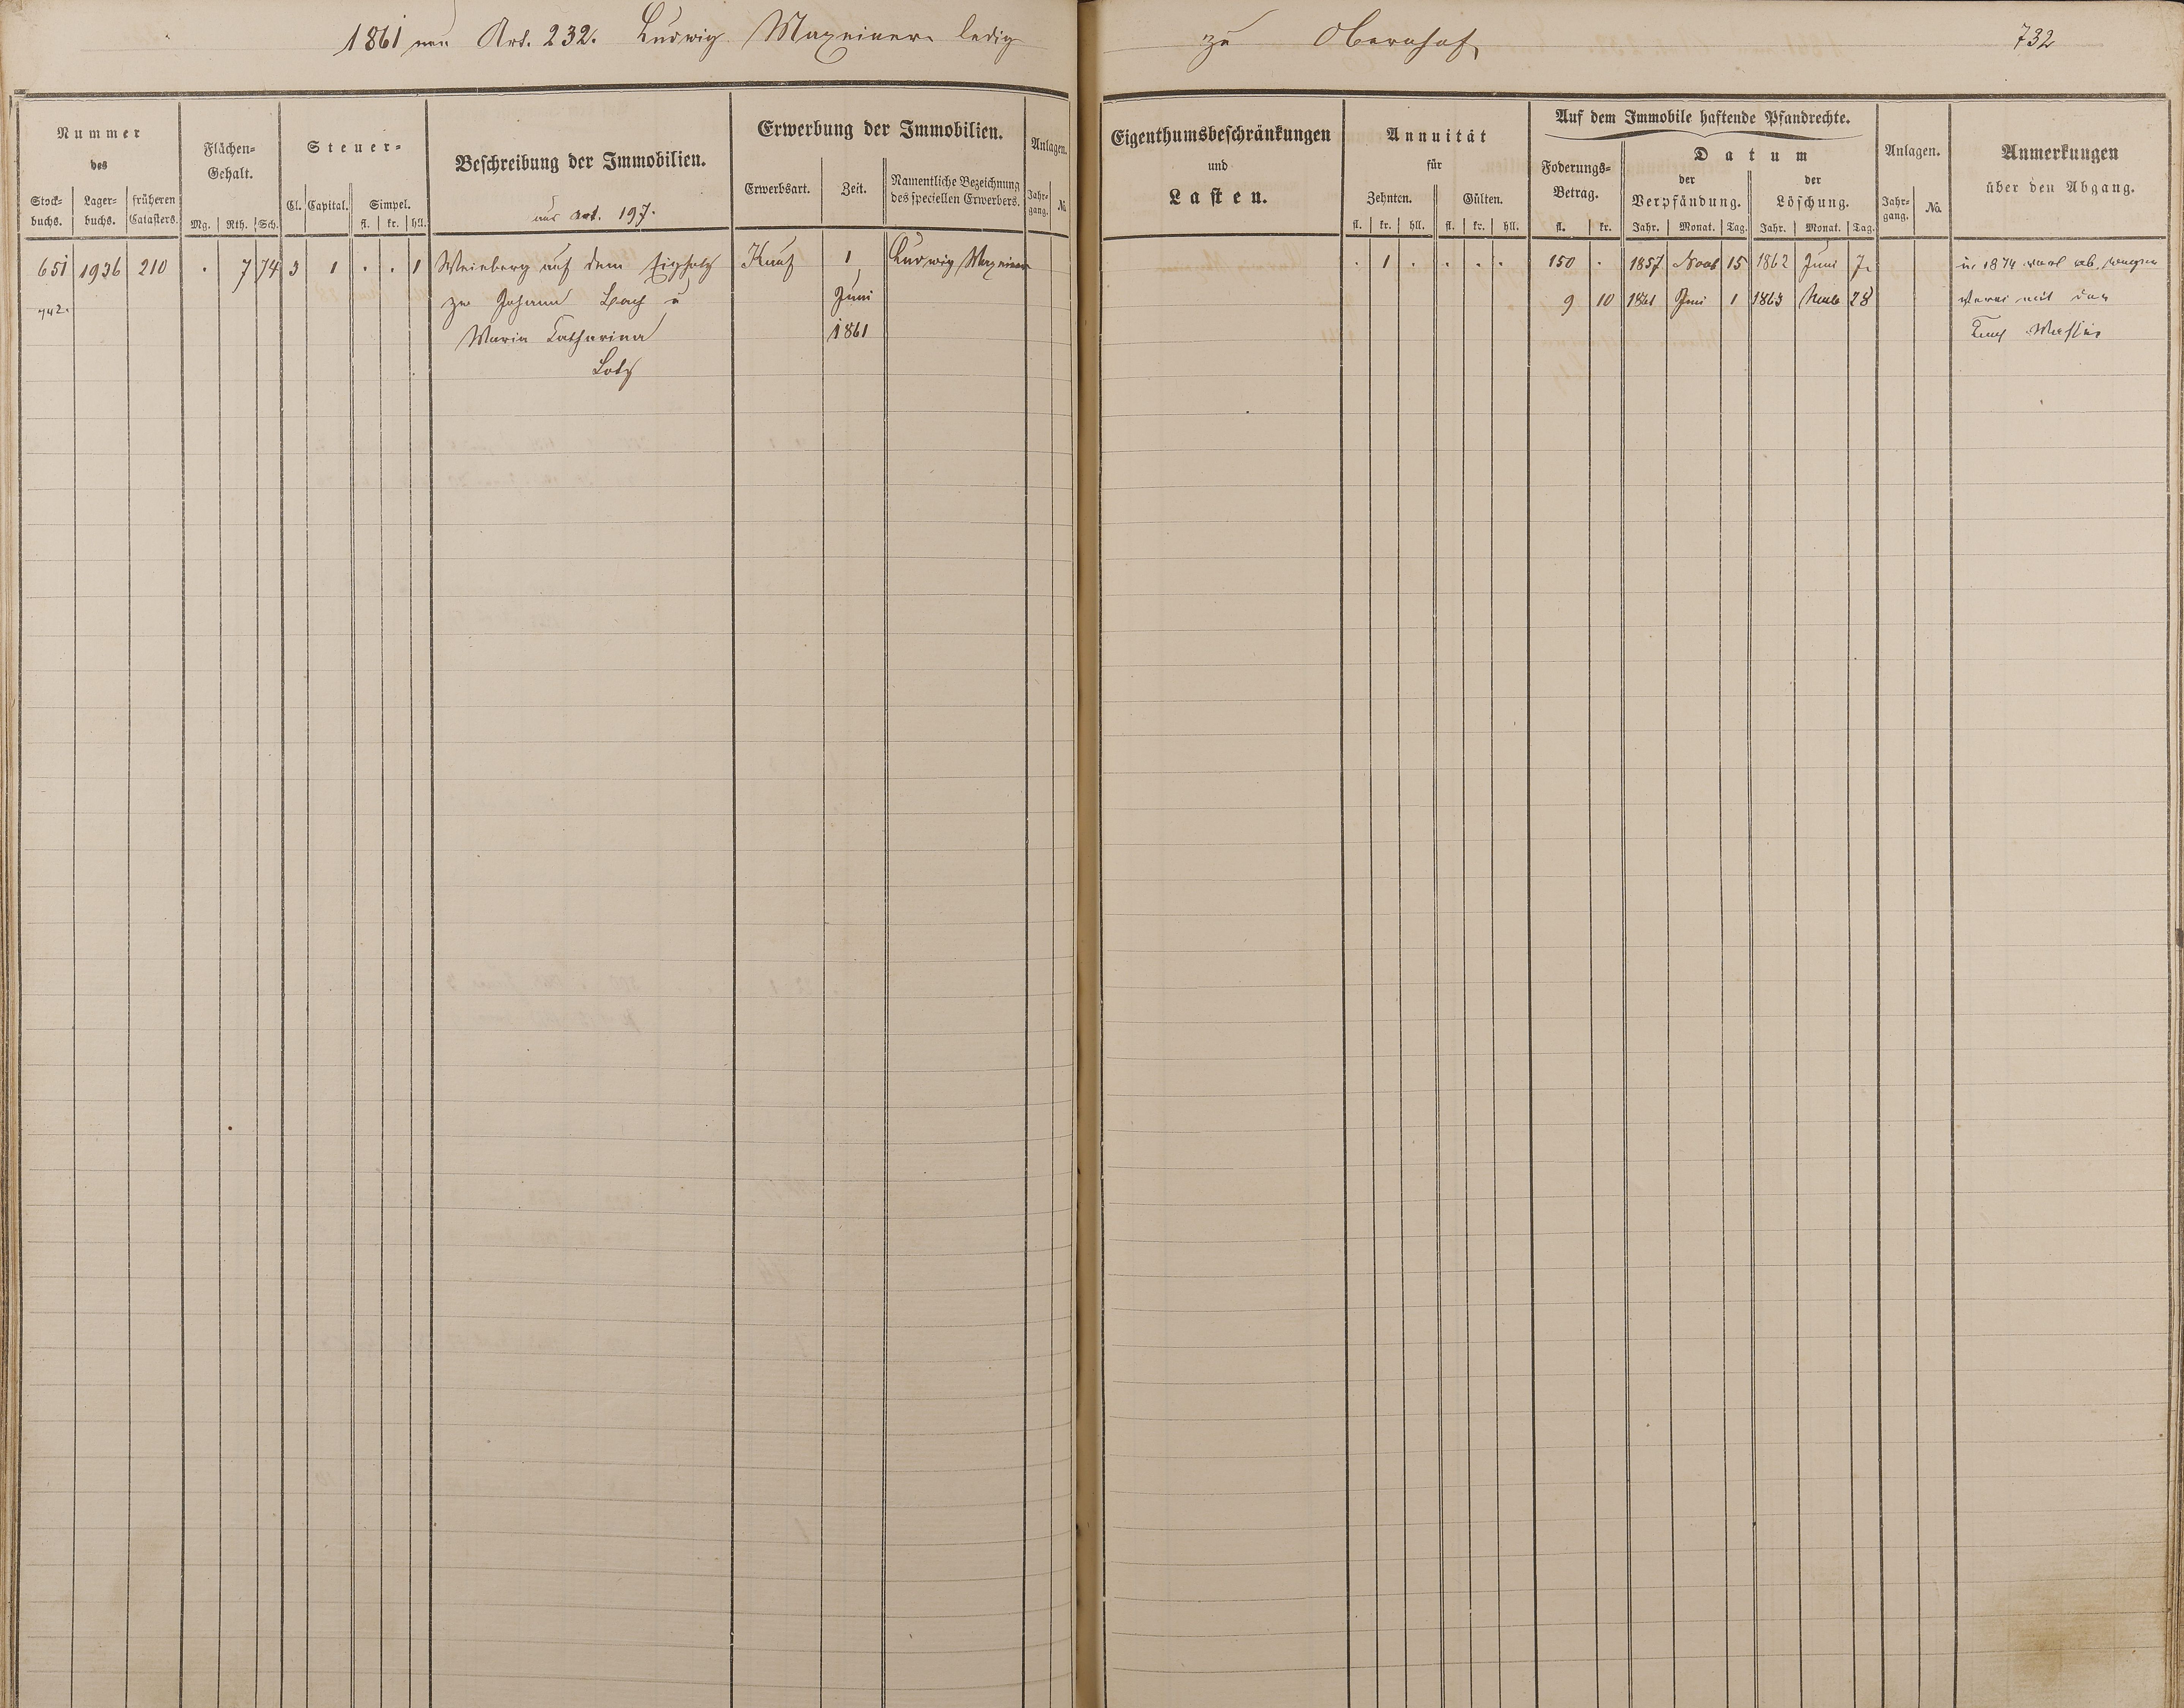 1861 neu Art. 232. Ludwig Maxeiner ledig
zu Obernhof
732
Nummer
des
Stock-
buchs.
Lager-
buchs.
früheren
Catasters.
Flächen-
Gehalt.
Mg. Rth. Sch.
Steuer-
Cl. Capital. Simpel.
fl. kr. hll.
Beschreibung der Immobilien.
aus Art. 197.
Erwerbung der Immobilien.
Erwerbsart. Zeit. Namentliche Bezeichnung
des speciellen Erwerbers.
Anlagen.
Jahr-
gang. No
Eigenthumsbeschränkungen
und
Lasten.
Annuität
für
Zehnten. Gülten.
fl. kr. hll. fl. kr. hll.
Auf dem Immobile haftende Pfandrechte.
Foderungs-
Betrag.
fl. kr.
Datum
der
Verpfändung.
Jahr. Monat. Tag.
der
Löschung.
Jahr. Monat. Tag.
Anlagen.
Jahr-
gang. No.
Anmerkungen
über den Abgang.
651 1936 210 . 7 74 3 1 . . 1 Weinberg auf dem Kauf 1 Ludwig Maxeiner
742. zw Johann Bach u Juni
Maria Catharina 1861
Lotz
. 1 . . . . 150 . 1857 Novb 15 1862 Juni 7
9 10 1861 Juni 1 1863 28
in 1874 ab
mit